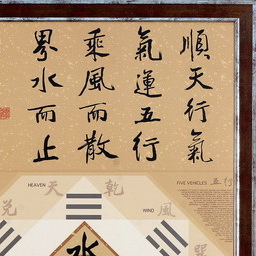 順天行氣
氣運五行
乘風而散
界水而止
HEAVEN 天 乾
FIVE VEHICLES 五行
兌
WIND 風
巽
水